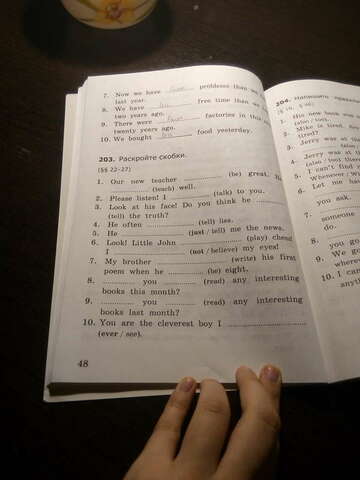 7. Now we have fewer problems than we
last year.
8. We have less free time than we
two years ago.
9. There were fewer factories in this
twenty years ago.
10. We bought less food yesterday.
203. Раскройте скобки.
(§§ 22-27)
1. Our new teacher ............ (be) great. He
............ (teach) well.
2. Please listen! I ............ (talk) to you.
3. Look at his face! Do you think he ............
(tell) the truth?
4. He often ............ (tell) lies.
5. He ............ (just / tell) me the news.
6. Look! Little John ............ (play) chess!
I ............ (not / believe) my eyes!
7. My brother ............ (write) his first
poem when he ............ (be) eight.
8. ............ you ............ (read) any interesting
books this month?
9. ............ you ............ (read) any interesting
books last month?
10. You are the cleverest boy I ............
(ever / see).
48
204. Напишите
1. His new book
(also / too).
2. Mike is tired,
tired?
3. Jerry was at
(also / too)
4. Jerry was at the
(also / too)
5. I can't find
6. Let me
7.
you ask.
someone
do.
8.
you go
9. We go
where
10. I can
anyth